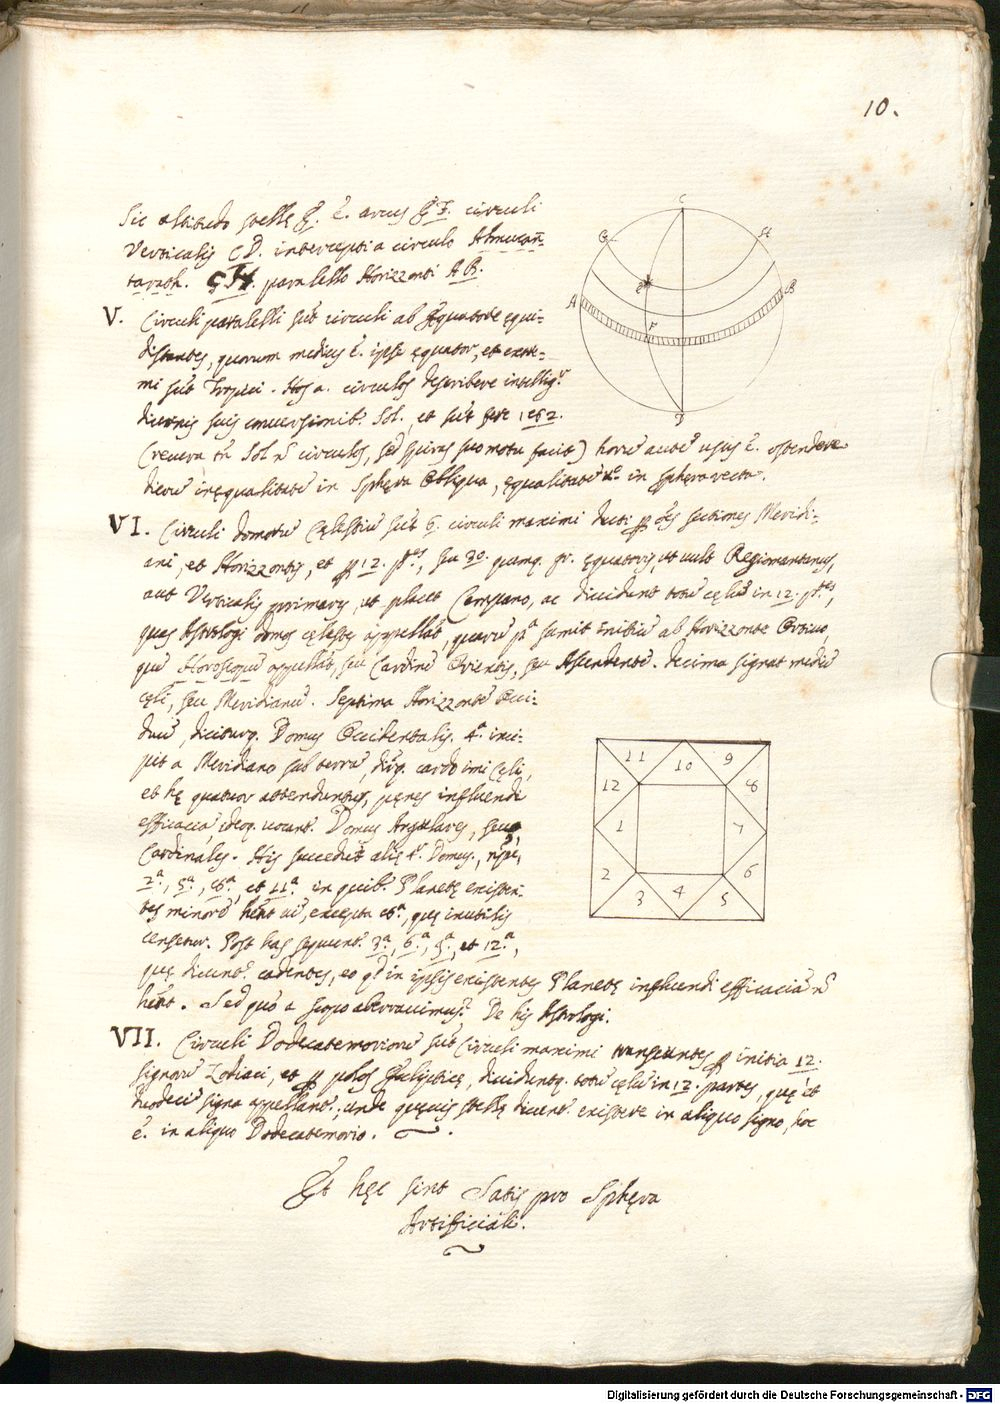 10.
Sic altitudo stellę E. ē. arcus E F. circuli
Verticalis CD. intercepti a circulo Almucan̄-
tarath. GH. parallelo Horizzonti AB.
V. Circuli paralelli sūt circuli ab Æquatore equi-
distantes, quorum medius ē. ipse ęquator, et extre-
mi sūt Tropici. Hos a. circulos describere intellig.r
diurnis suis conversionib. Sol. et sūt fere 182.
(revera tn̄ Sol n̄ circulos, sed spiras suo motu facit) horū autē usus ē. ostendere
dierū inęqualitatē in Sphęra Obliqua, ęqualitatē in sphęra recta.
VI. Circuli domorū Cęlestiū sūt 6. circuli maximi ducti p oēs sectiones Meridi-
ani, et Horizzontis, et p 12. ptes, seu 30. quemq. gr. ęquatoris, ut vult Regiomontanus,
aut Verticalis primary, ut placet Campano, ac dividunt totū cęlū in 12. ptes,
quas Astrologi domos cęlestes appellāt, quarū pa sumit initiū ab Horizzonte Ortivo,
quē Horoscopū appellāt, seu Cardinē Orientis, seu Ascendentē. Decima signat mediū
cęli, seu Meridianū. Septima Horizzontē Occi-
duū, diciturq. Domus Occidentalis. 4a. inci-
pit a Meridiano sub terra, dirq. cardo imi cęli,
et hę quatuor attenduntur, penes influendi
efficacia, ideoq. vocant. Domus Angulares, seu
Cardinales. His succedūt alię 4r Domus, npe,
2a, 5a, 8a. et 11a. in quib. Planetę existen-
tes minorē hēnt vi, excepta 8a, quę inutilis
censetur. Post has sequunt. 3a, 6a, 9a, et 12a,
quę dicunt. cadentes, eo qd in ipsis existentes Planetę influendi efficaciā n̄
hēnt. Sed quo a scopo aberravimus? De his Astrologi.
VII. Circuli Dodecatemoriorū sūt Circuli maximi transeuntes p initia 12.
signorū Zodiaci, et p polos Ecliptice, dividuntq. totū cęlū in 12. partes, quę et
duodeci signa appellant., unde quęvis stellę dicunt. existere in aliquo signo, hoc
ē. in aliquo Dodecatemorio.
Et hęc sint Satis pro Sphęra
Artificiali.
C
G
H
E
A
B
F
D
11
10
9
12
8
1
7
2
6
3
4
5
Digitalisierung gefördert durch die Deutsche Forschungsgemeinschaft - DFG